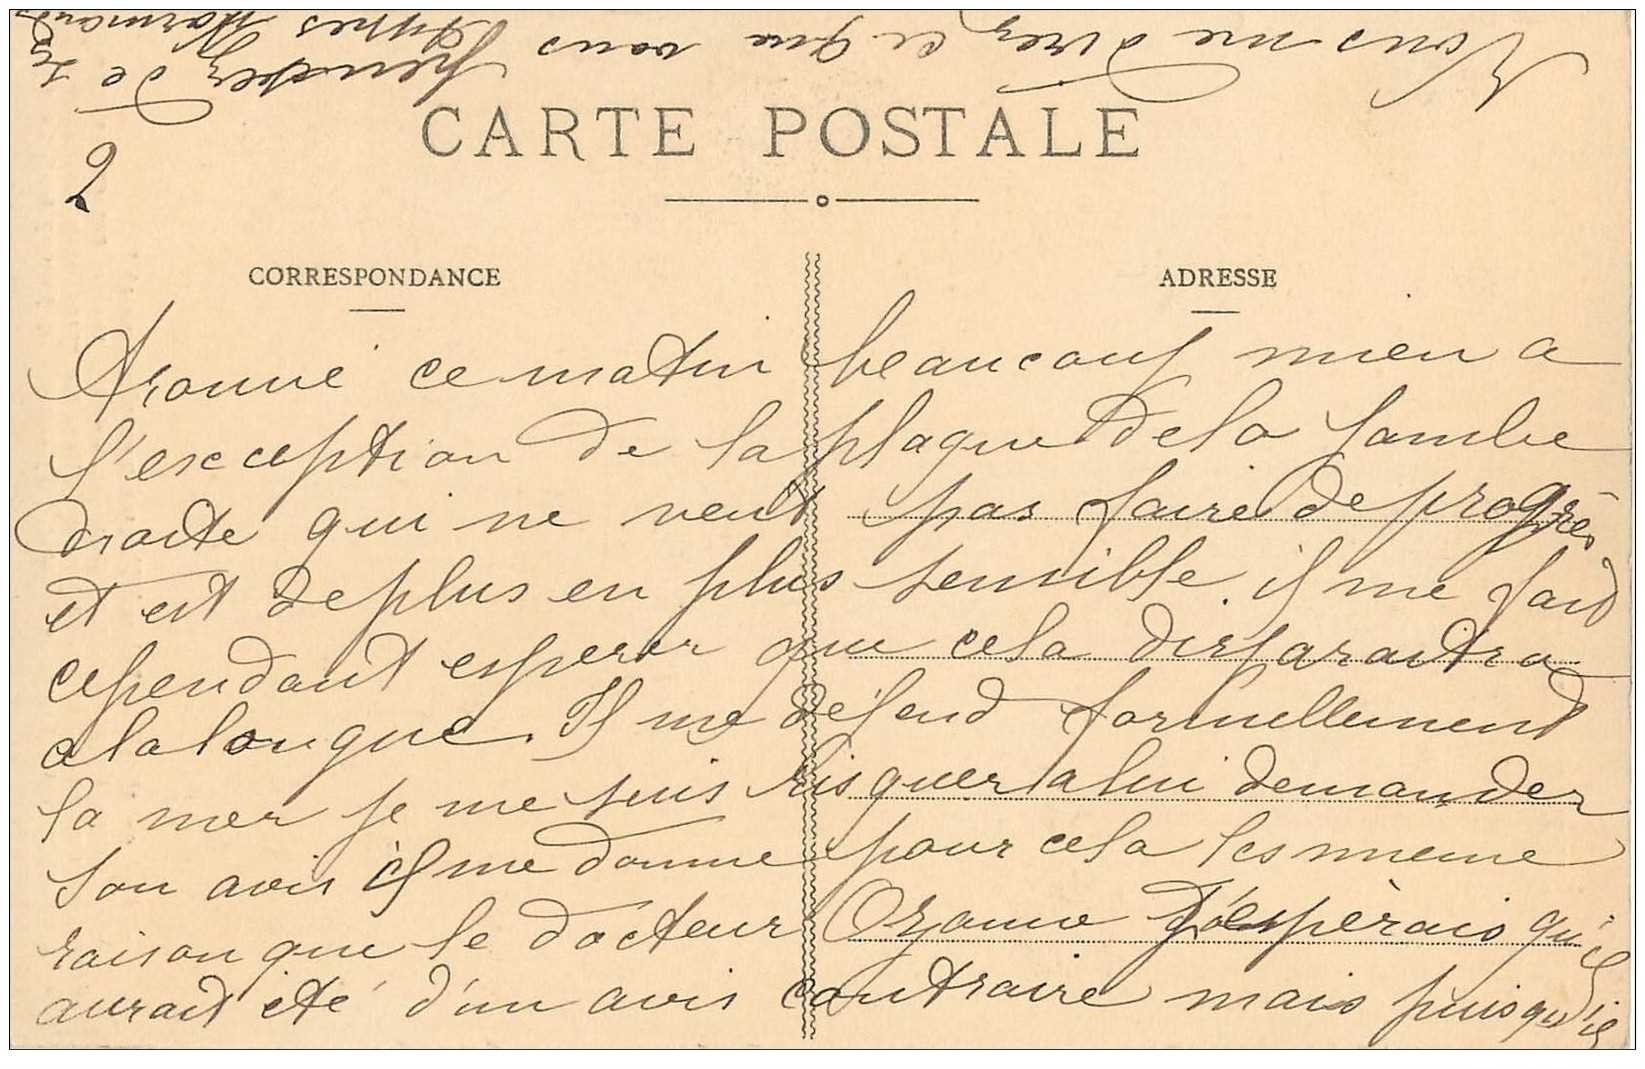 Vous me direz ce que vous
penser de ses
types Normands
CARTE POSTALE
2
CORRESPONDANCE
ADRESSE
A trouvé ce matin beaucoup mieu a
l'esception de la plaque de la jambe
droite qui ne veut pas faire de progrès
et est de plus en plus sensible. il me fait
cependant esperer que cela disparaitra
a la longue. Il me défend formellement
la mer je me suis risquer a lui demander
son avis il me donne pour cela les meme
raison que le docteur Ozanne J'espèrais qu'il
aurait été d'un avis contraire mais puisqu'il